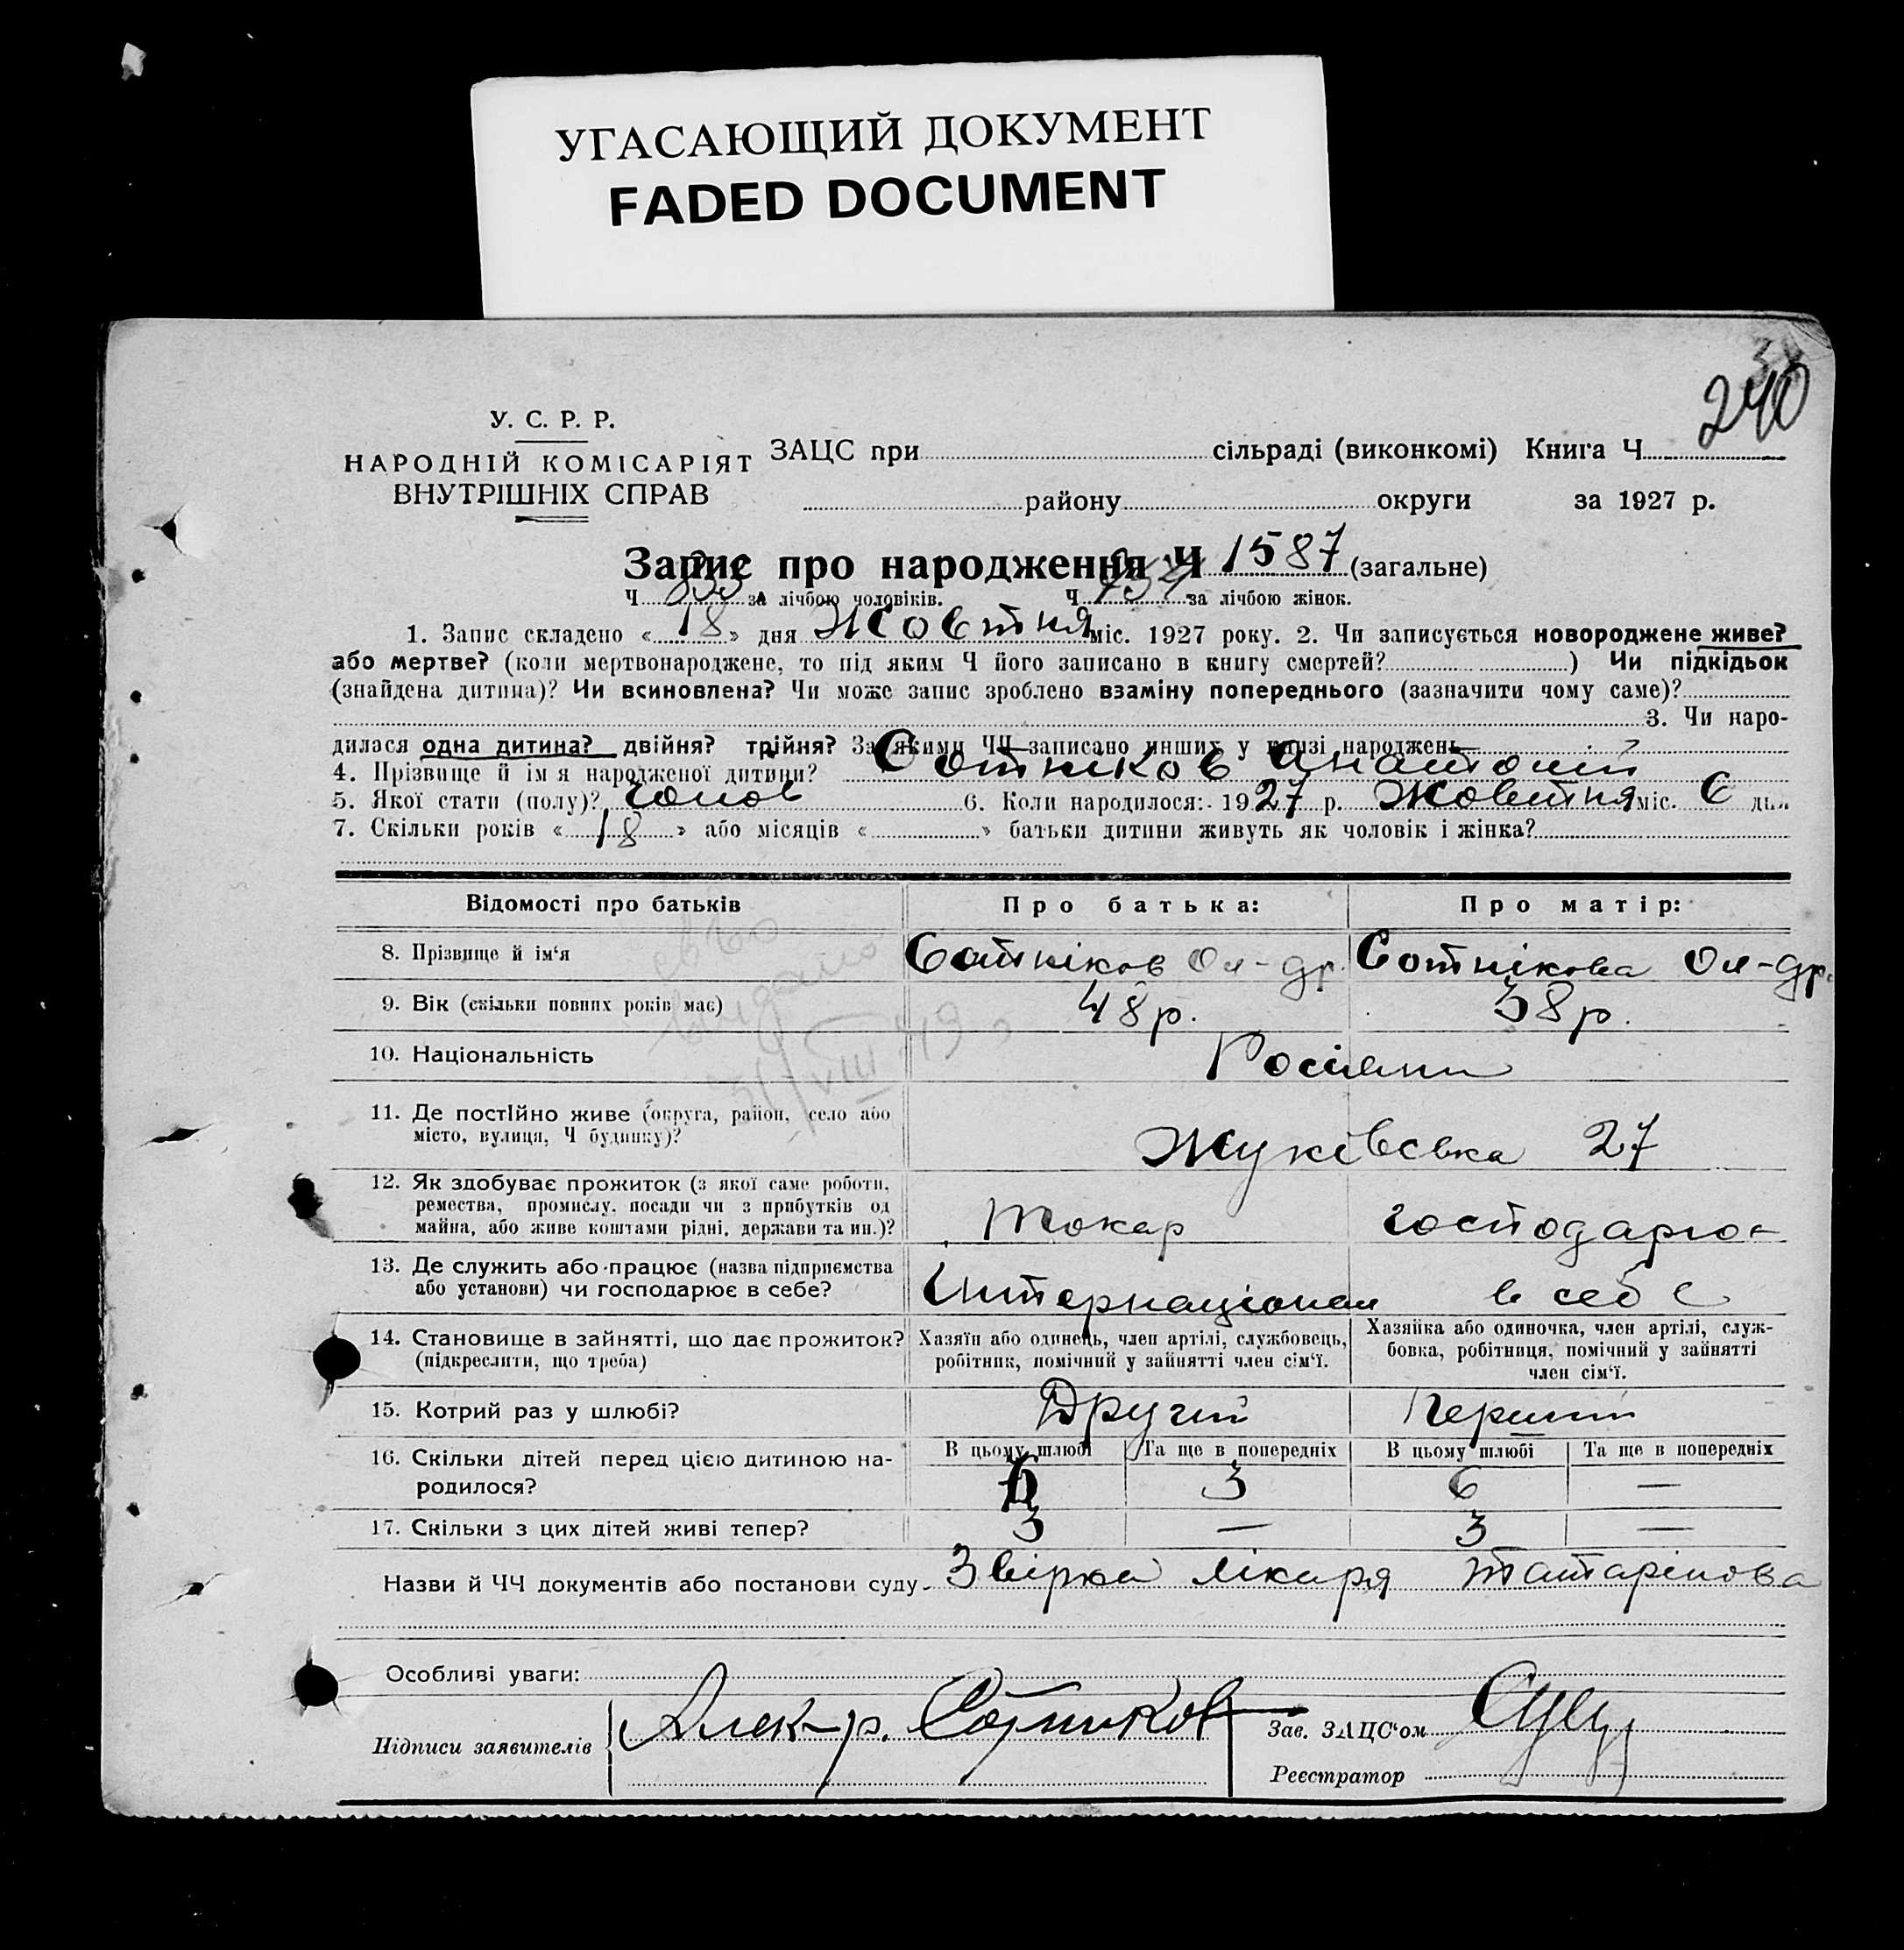 УГАСАЮЩИЙ ДОКУМЕНТ
FADED DOCUMENT
240
У. С. Р. Р.
НАРОДНІЙ КОМІСАРІЯТ
ВНУТРІШНІХ СПРАВ
ЗАЦС при сільраді (виконкомі) Книга Ч
району округи за 1927 р.
Запис про народження Ч 1587 (загальне)
Ч за лічбою чоловіків. Ч за лічбою жінок.
1. Запис складено « 18 » дня Жовтня міс. 1927 року. 2. Чи записується новороджене живе?
або мертве? (коли мертвонароджене, то під яким Ч його записано в книгу смертей? ) Чи підкідьок
(знайдена дитина)? Чи всиновлена? Чи може запис зроблено взаміну попереднього (зазначити чому саме)?
3. Чи наро-
дилася одна дитина? двійня? трійня? За якими ЧЧ записано инших у книзі народжень
4. Прізвище й ім я народженої дитини? Сотніков Анатолій
5. Якої стати (полу)? чолов 6. Коли народилося: 1927 р. Жовтня міс. 6 дня
7. Скільки років « 18 » або місяців « » батьки дитини живуть як чоловік і жінка?
Відомості про батьків Про батька: Про матір:
8. Прізвище й ім‘я Сотніков Ол-др. Сотнікова Ол-др.
9. Вік (скільки повних років має) 48 р. 38 р.
10. Національність Росіяни
11. Де постійно живе (округа, район, село або
місто, вулиця, Ч будинку)? Жуківська 27
12. Як здобуває прожиток (з якої саме роботи,
ремества, промислу, посади чи з прибутків од
майна, або живе коштами рідні, держави та ин.)? Токар господарює
13. Де служить або працює (назва підприємства
або установи) чи господарює в себе? Інтернаціонал в себе
14. Становище в зайнятті, що дає прожиток?
(підкреслити, що треба)
Хазяїн або одинець, член артілі, службовець,
робітник, помічний у зайнятті член сім‘ї.
Хазяйка або одиночка, член артілі, служ-
бовка, робітниця, помічний у зайнятті
член сім‘ї.
15. Котрий раз у шлюбі? Другий Перший
16. Скільки дітей перед цією дитиною на-
родилося?
В цьому шлюбі Та ще в попередніх В цьому шлюбі Та ще в попередніх
3 6 —
17. Скільки з цих дітей живі тепер? 3 — 3 —
Назви й ЧЧ документів або постанови суду Звірка лікаря Татарінова
Особливі уваги:
Підписи заявителів Алек-р. Сотников
Зав. ЗАЦС‘ом
Реєстратор